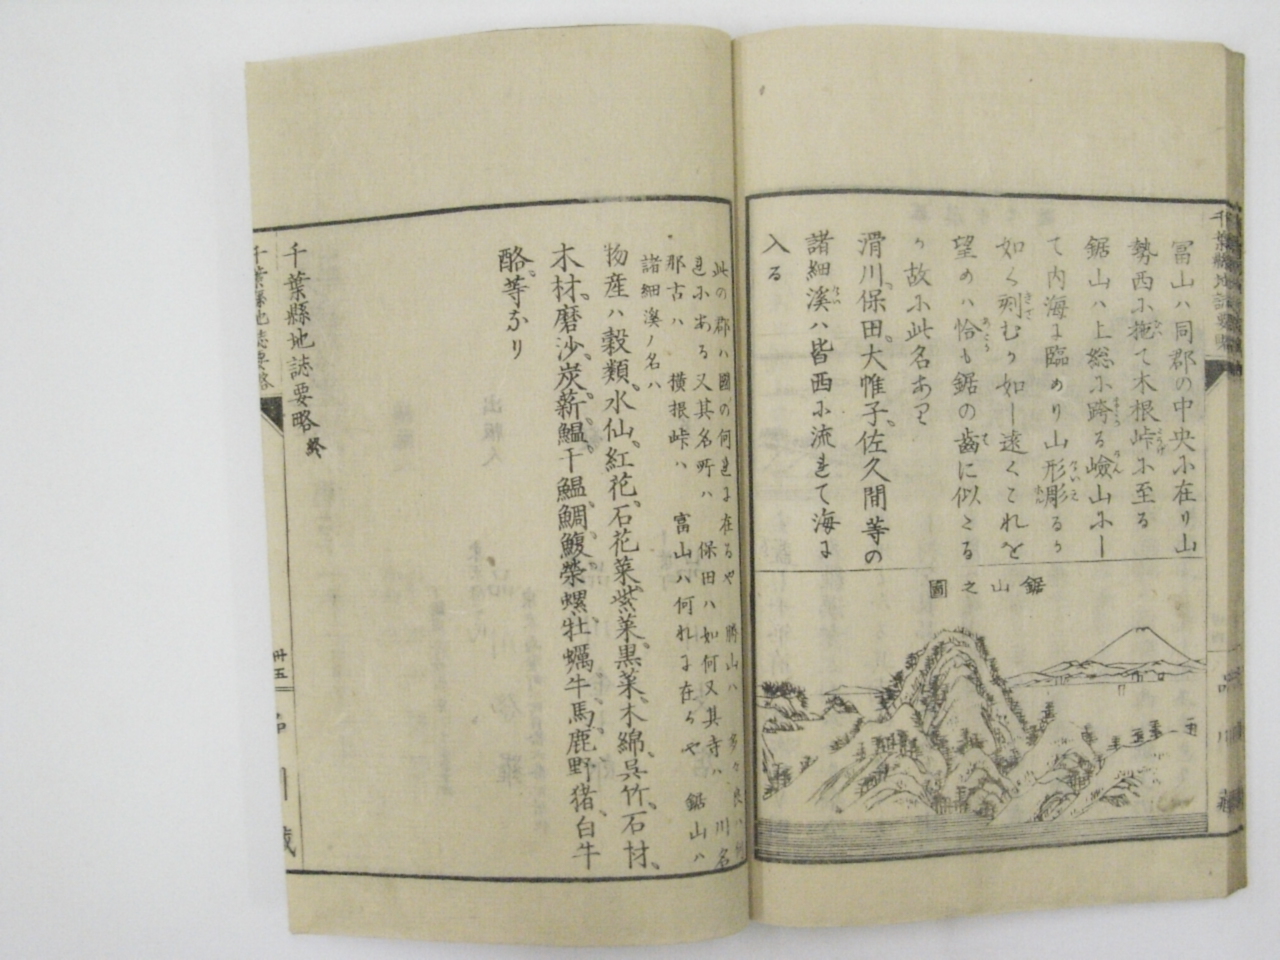 冨山ハ同郡の中央ふ在り山
勢西ふ拖て木根峠ふ至る
鋸山ハ上総ふ跨る嶮山ふし
て内海よ臨めり山形彫るか
如く刻むか如し遠くこれを
望めハ恰も鋸の齒に似たる
か故ふ此名あり
滑川、保田、大帷子、佐久間等の
諸細溪ハ皆西ふ流れて海よ
入る
鋸山之圖
此の郡ハ國の何れよ在るや 勝山ハ
れふある又其名所ハ 保田ハ如何又其寺ハ
那古ハ 横根峠ハ 富山ハ何れよ在りや 鋸山ハ
諸細溪ノ名ハ
物産ハ穀類、水仙、紅花、石花菜、紫菜、黒菜、木綿、呉竹、石材、
木材、磨沙、炭、薪、鰛、干鰛、鯛、鰒、榮螺、牡蠣、牛、馬、鹿、野猪、白牛
酪、等なり
千葉縣地誌要略 終
千葉縣地誌要略
卅五